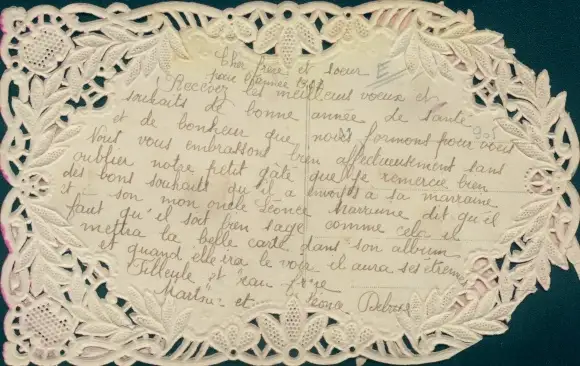 Cher frère et soeur
pour l'année
Recevez les meilleurs voeux et
souhaits de bonne année de santé
et de bonheur que nous formons pour vous
Nous vous embrassons bien affectueusement sans
oublier notre petit gâté que je remercie bien
des bons souhaits qu'il a envoyés à sa marraine
et à son mon oncle Léonce Marraine dit qu'il
faut qu'il soit bien sage comme cela il
mettra la belle carte dans son album
et quand elle ira le voir il aura ses étrennes
Filleule et
et Léonce